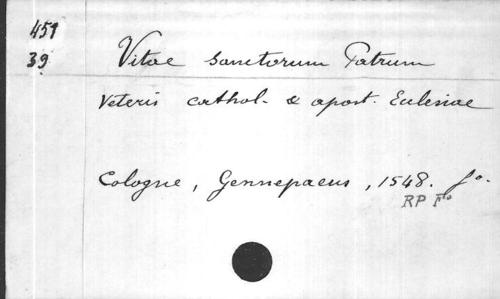 451
39
Vitae sanctorum Patrum
Veteris cathol. & apost. Eclesiae
Cologne, Gennepaeus, 1548. fo.
RP Fo